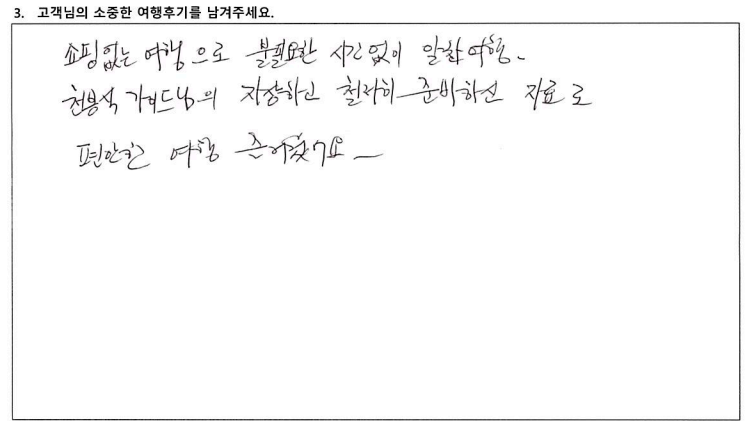 3. 고객님의 소중한 여행후기를 남겨주세요.
쇼핑없는 여행으로 불필요한 시간없이 알찬여행.
천봉석 가이드님의 자상하고 철저히 준비하신 자료로
편안한 여행 즐거웠어요